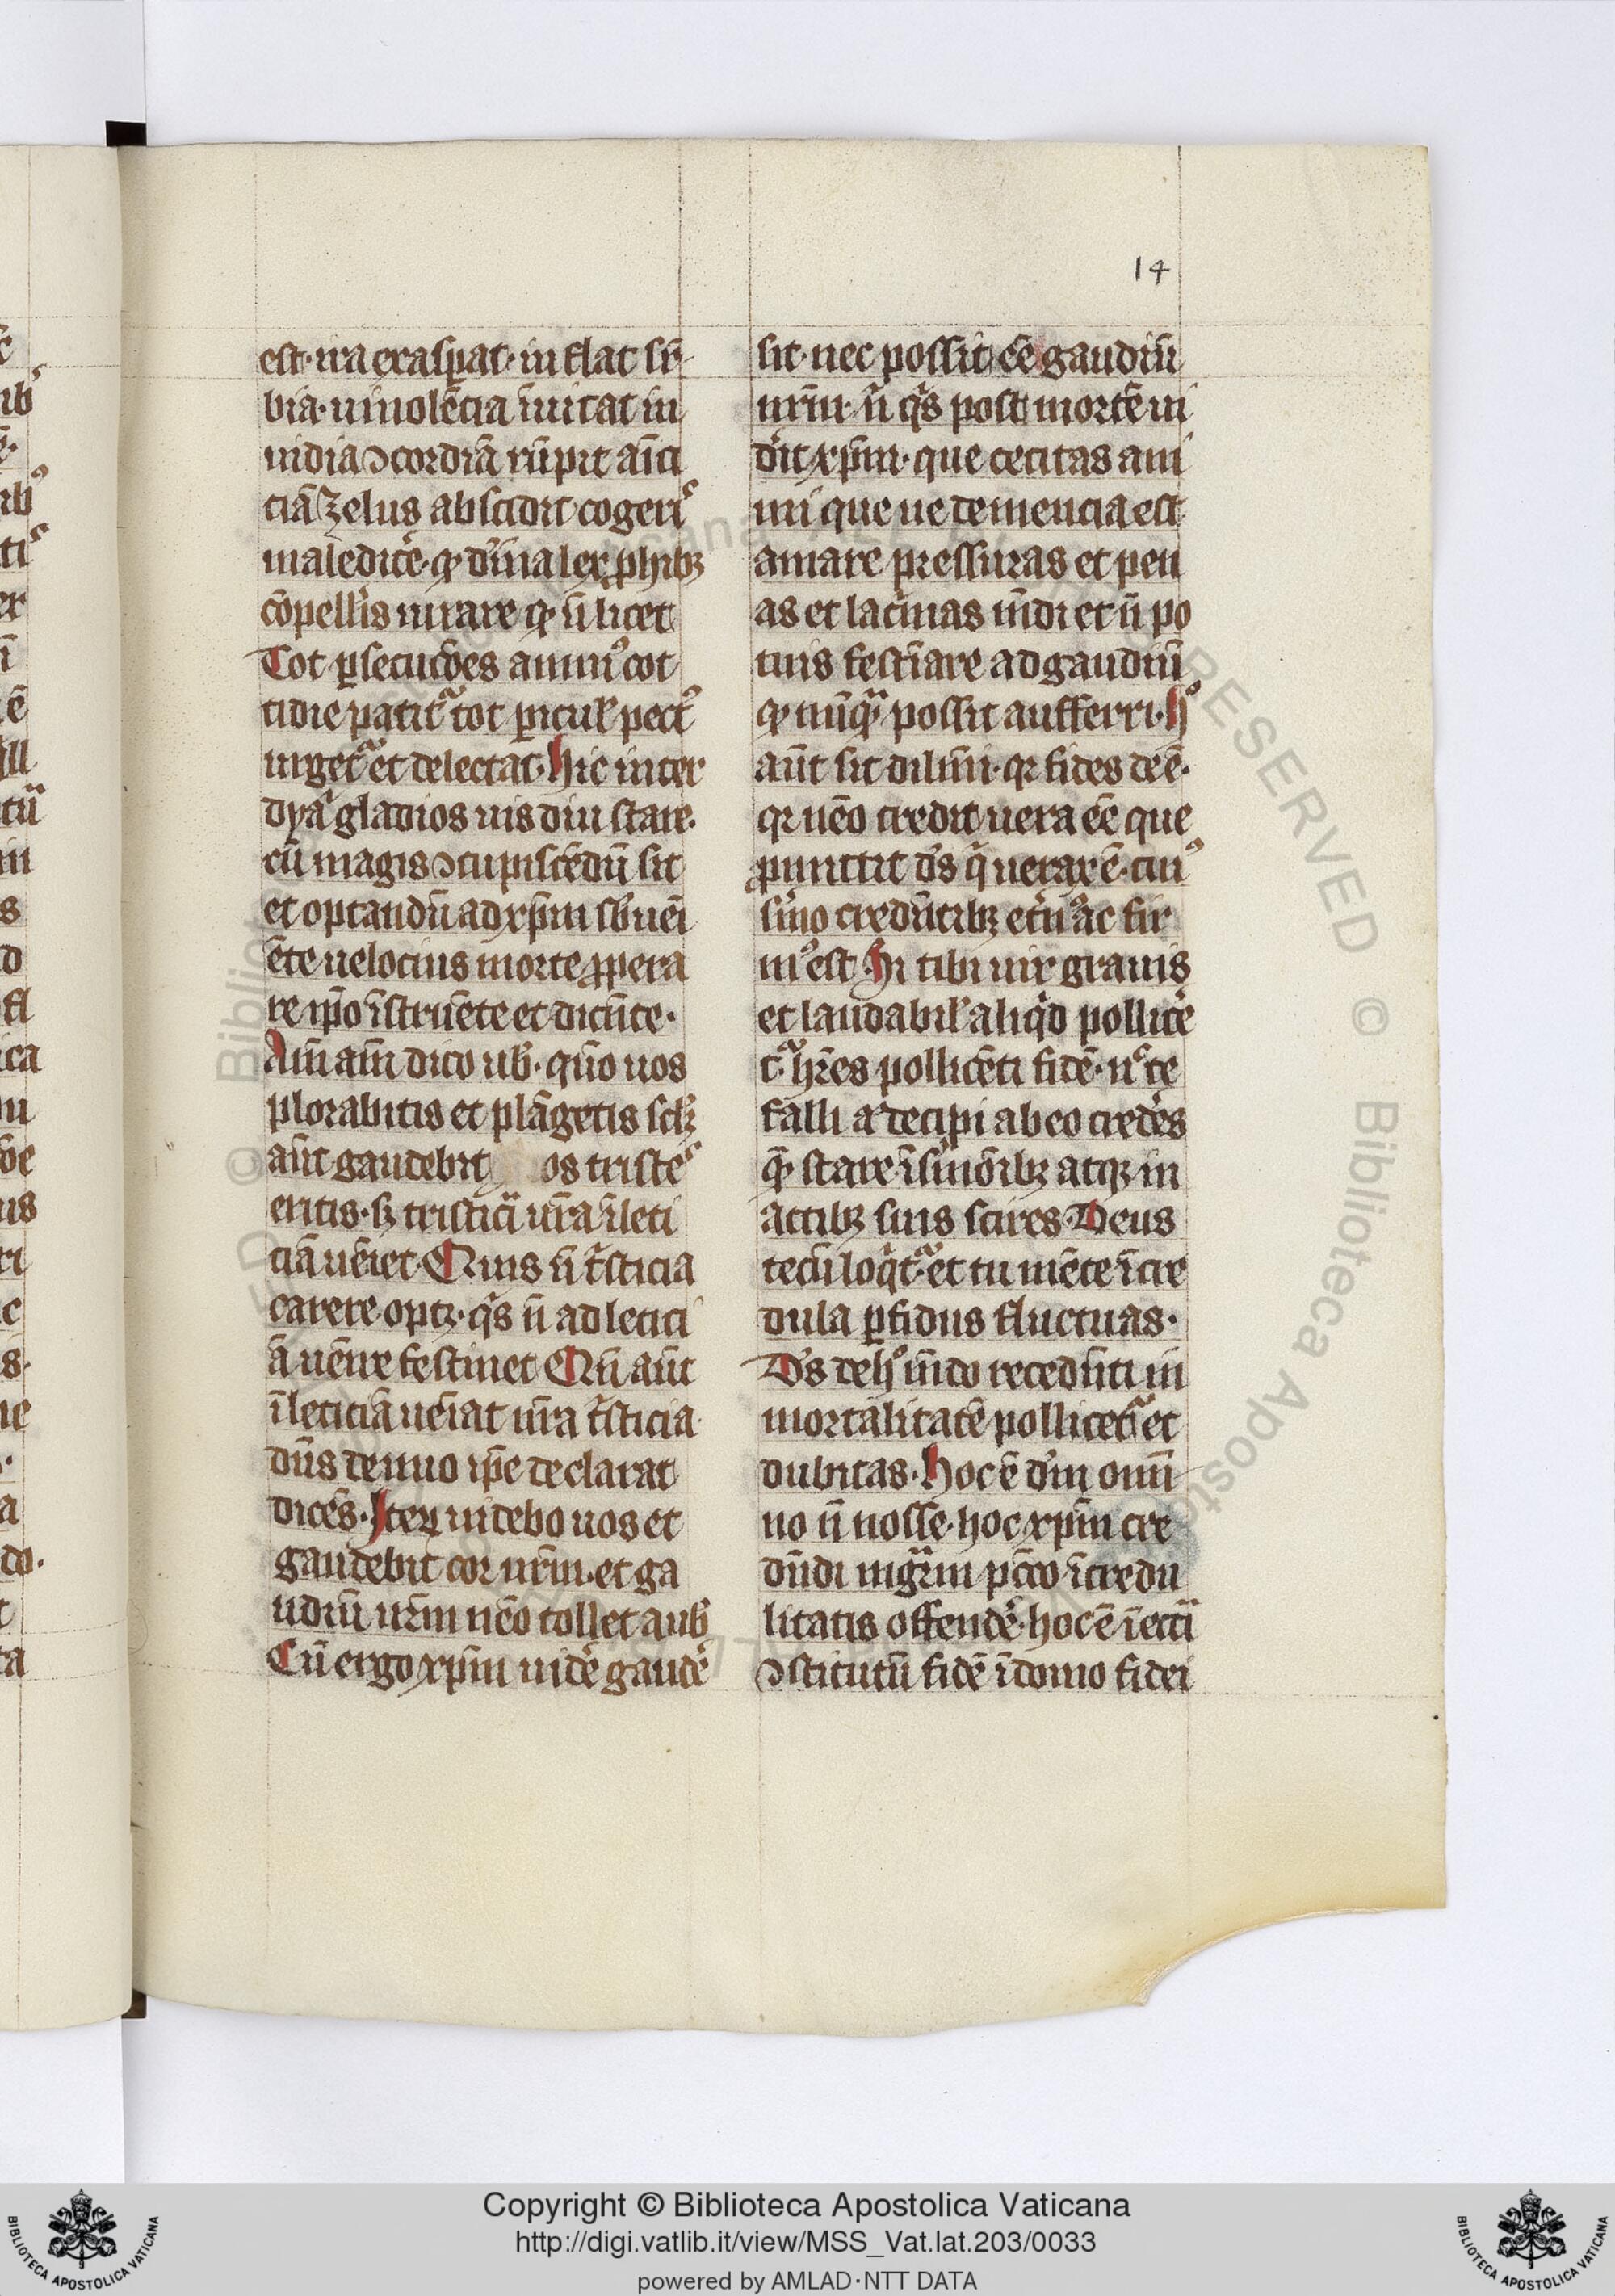 14
est· ira exasꝑat· inflat su
bia· uinolēcia īuitat in
uidia ꝯcordiā rūpit amici
ciā zelus abscidit cogeris
maledicẻ· qđ diuina lex ꝓhibꝫ
cōpelleris iurare qđ ñ licet
Tot ꝑsecuc̄oes animꝰ cot
tidie patitᷣ tot ꝑicul' pectꝰ
urgetᷣ et delectat· Hic inter
dyaᵇ gladios uis diu stare·
cū magis ꝯcupiscēdū sit
et optandū ad xp̄m sb'ueni
ēte uelocius morte ꝓpera
re ip̄o īstruēte et dicēte·
Am̄ am̄ dico uob̄· qm̄o uos
plorabitis et plāgetis sclꝫ
aūt gaudebit os tristes
eritis· sꝫ tristicia ur̄a ī leti
ciā ueniet· Quis ñ tᵢsticia
carere optꝫ· qᵢs ñ ad letici
ā uēire festinet Qn̄ aūt
ī leticiā ueniat ur̄a tᵢsticia·
dn̄s denuo ip̄e declarat
dicēs· Iteꝝ uidebo uos et
gaudebit cor ur̄m· et ga
udiū ur̄m nēo tollet a uob̄
Cū ergo xp̄m uidẻ gaudẻ
sit· nec possit eē gaudiū
nr̄m· ñ qᵢs post mortē ui
dᷣit xp̄m· que cecitas ani
mi que ue demencia est
amare pressuras et pen
as et lacᵢmas mūdi et ñ po
tius festīare ad gaudiū
qđ nūqᵃ possit aufferri· Hᵒ
aūt sit dilm̄i· qr fides deē·
qr nēo credit uera eē que
ꝓmittit dᷤ q̄ uerax ē· cuiꝰ
sᷣmo credētibꝫ etᷣnꝰ ac fir
mꝰ est· Si tibi uir grauis
et laudabil' aliqᵈ pollicẻ
tᷣ hr̄es pollicēti fidē· n̄ᶜ te
falli aᵘ decipi ab eo credẻs
qm̄ stare ī sᷣmonibꝫ atqꝫ in
actibꝫ suis scires· Deus
tecū loqᵢtᷣ et tu mēte īcre
dula ꝑfidus fluctuas·
Dᷤ de hᵒ mūdo recedēti im
mortalitatē pollicetᷣ et
dubitas· Hoc ē dᷣm omni
no ñ nosse· hoc xp̄m cre
dēdi mgr̄m pcc̄o īcredu
litatis offendẻ· hoc ē ī ecc̄ia
ꝯstitutū fidē ī domo fidei
Copyright © Biblioteca Apostolica Vaticana
http://digi.vatlib.it/view/MSS_Vat.lat.203/0033
powered by AMLAD·NTT DATA